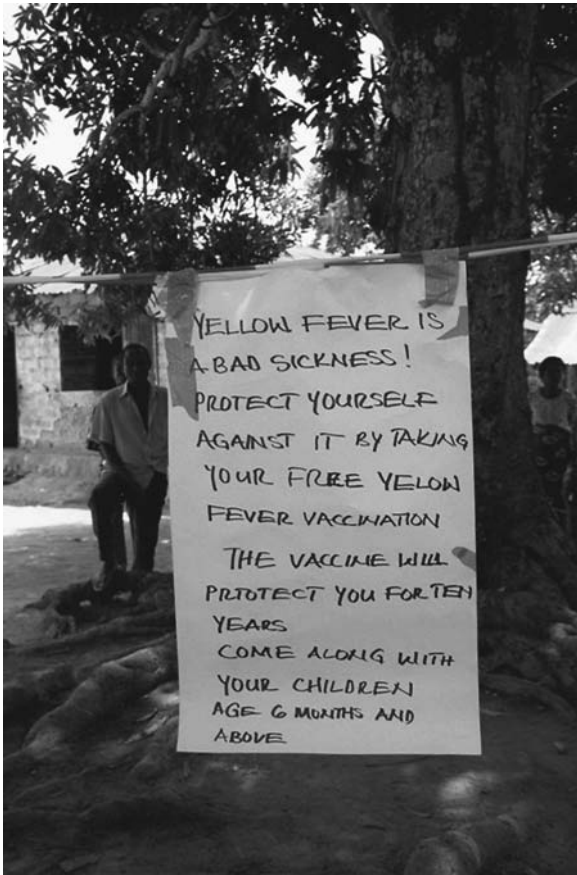 YELLOW FEVER IS
A BAD SICKNESS!
PROTECT YOURSELF
AGAINST IT BY TAKING
YOUR FREE YELOW
FEVER VACCINATION
THE VACCINE WILL
PRTOTECT YOU FOR TEN
YEARS
COME ALONG WITH
YOUR CHILDREN
AGE 6 MONTHS AND
ABOVE